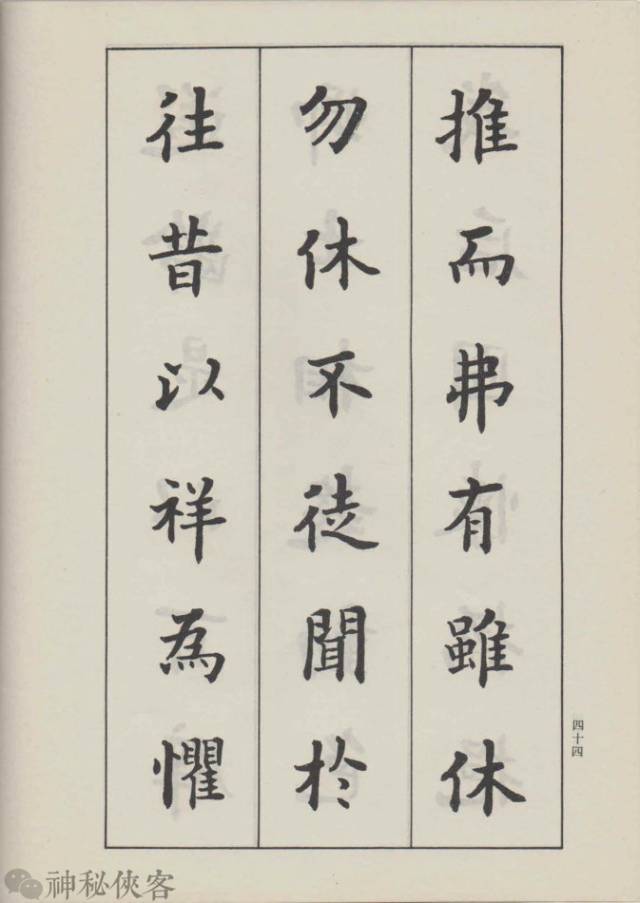 推而弗有雖休
勿休不徒聞於
往昔以祥為懼
四十四
神秘俠客